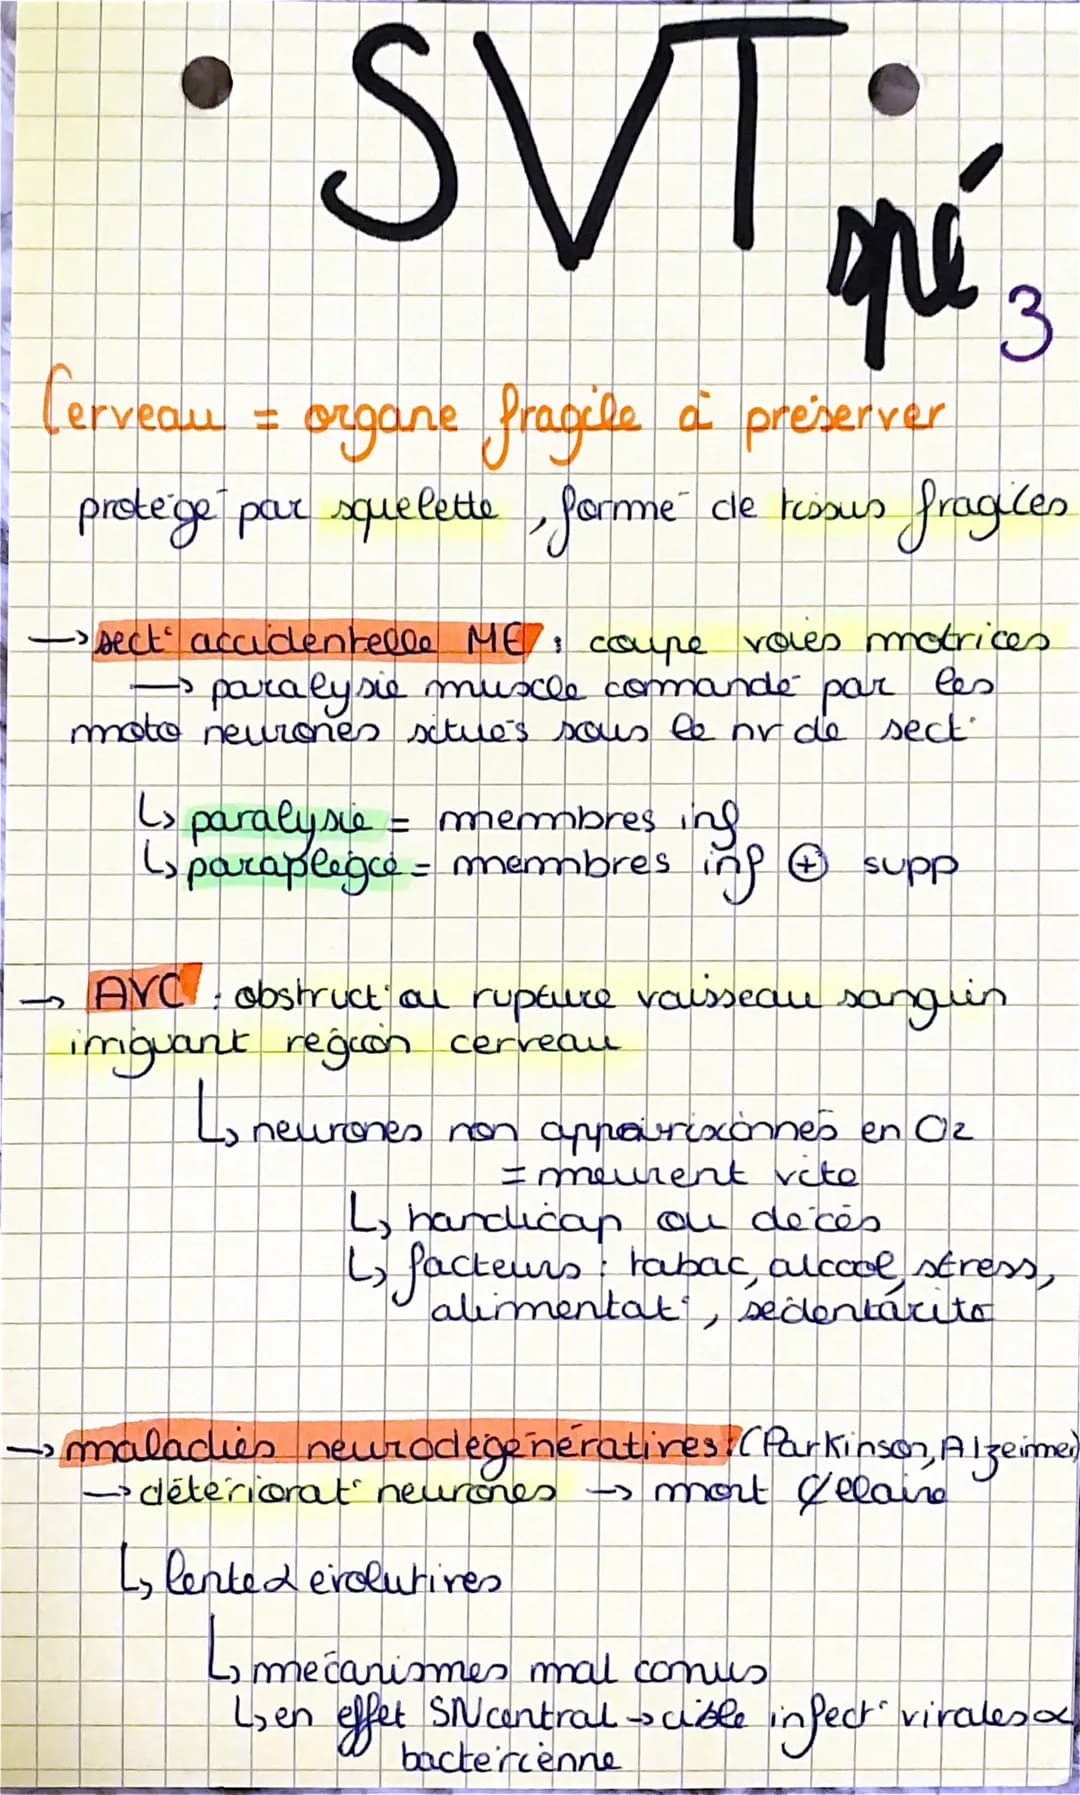 SVT
spé
3
Cerveau = organe fragile à préserver
protégé par squelette, formé de tissus fragiles
→ sect° accidentelle ME : coupe voies motrices
→ paralysie muscle commandé par les
moto neurones situés sous le nv de sect°
↳ paralysie = membres inf
↳ paraplégie = membres inf ⊕ supp
→ AVC : obstruct° ou rupture vaisseau sanguin
irriguant région cerveau
↳ neurones non approvisionnés en O2
= meurent vite
↳ handicap ou décès
↳ facteurs : tabac, alcool, stress,
alimentat°, sédentarité
→ maladies neurodégénératives : (Parkinson, Alzeimer)
→ détériorat° neurones → mort ¢ellaire
↳ lente & évolutives
↳ mécanismes mal connus
↳ en effet SN central → cible infect° virales &
bactérienne